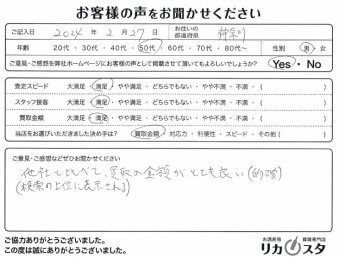 お客様の声をお聞かせください
ご記入日 2024 年 2 月 27 日 お住いの都道府県 神奈川
年齢 20代 ・ 30代 ・ 40代 ・ 50代 ・ 60代 ・ 70代 ・ 80代〜 性別 男 ・ 女
ご意見・ご感想を弊社ホームページにお客様の声として掲載させて頂いてもよろしいでしょうか? Yes ・ No
査定スピード 大満足 ・ 満足 ・ やや満足 ・ どちらでもない ・ やや不満 ・ 不満 ・ ( )
スタッフ接客 大満足 ・ 満足 ・ やや満足 ・ どちらでもない ・ やや不満 ・ 不満 ・ ( )
買取金額 大満足 ・ 満足 ・ やや満足 ・ どちらでもない ・ やや不満 ・ 不満 ・ ( )
当店をお選びいただきました決め手は? 買取金額 ・ 対応力 ・ 利便性 ・ スピード ・ その他 ( )
ご意見・ご感想などぜひお聞かせください
他社と比べて、買取の金額がとても良い(的確)
(検索の上位に表示される)
ご協力ありがとうございました。
この度は誠にありがとうございました。
お酒高価買取専門店
リカスタ